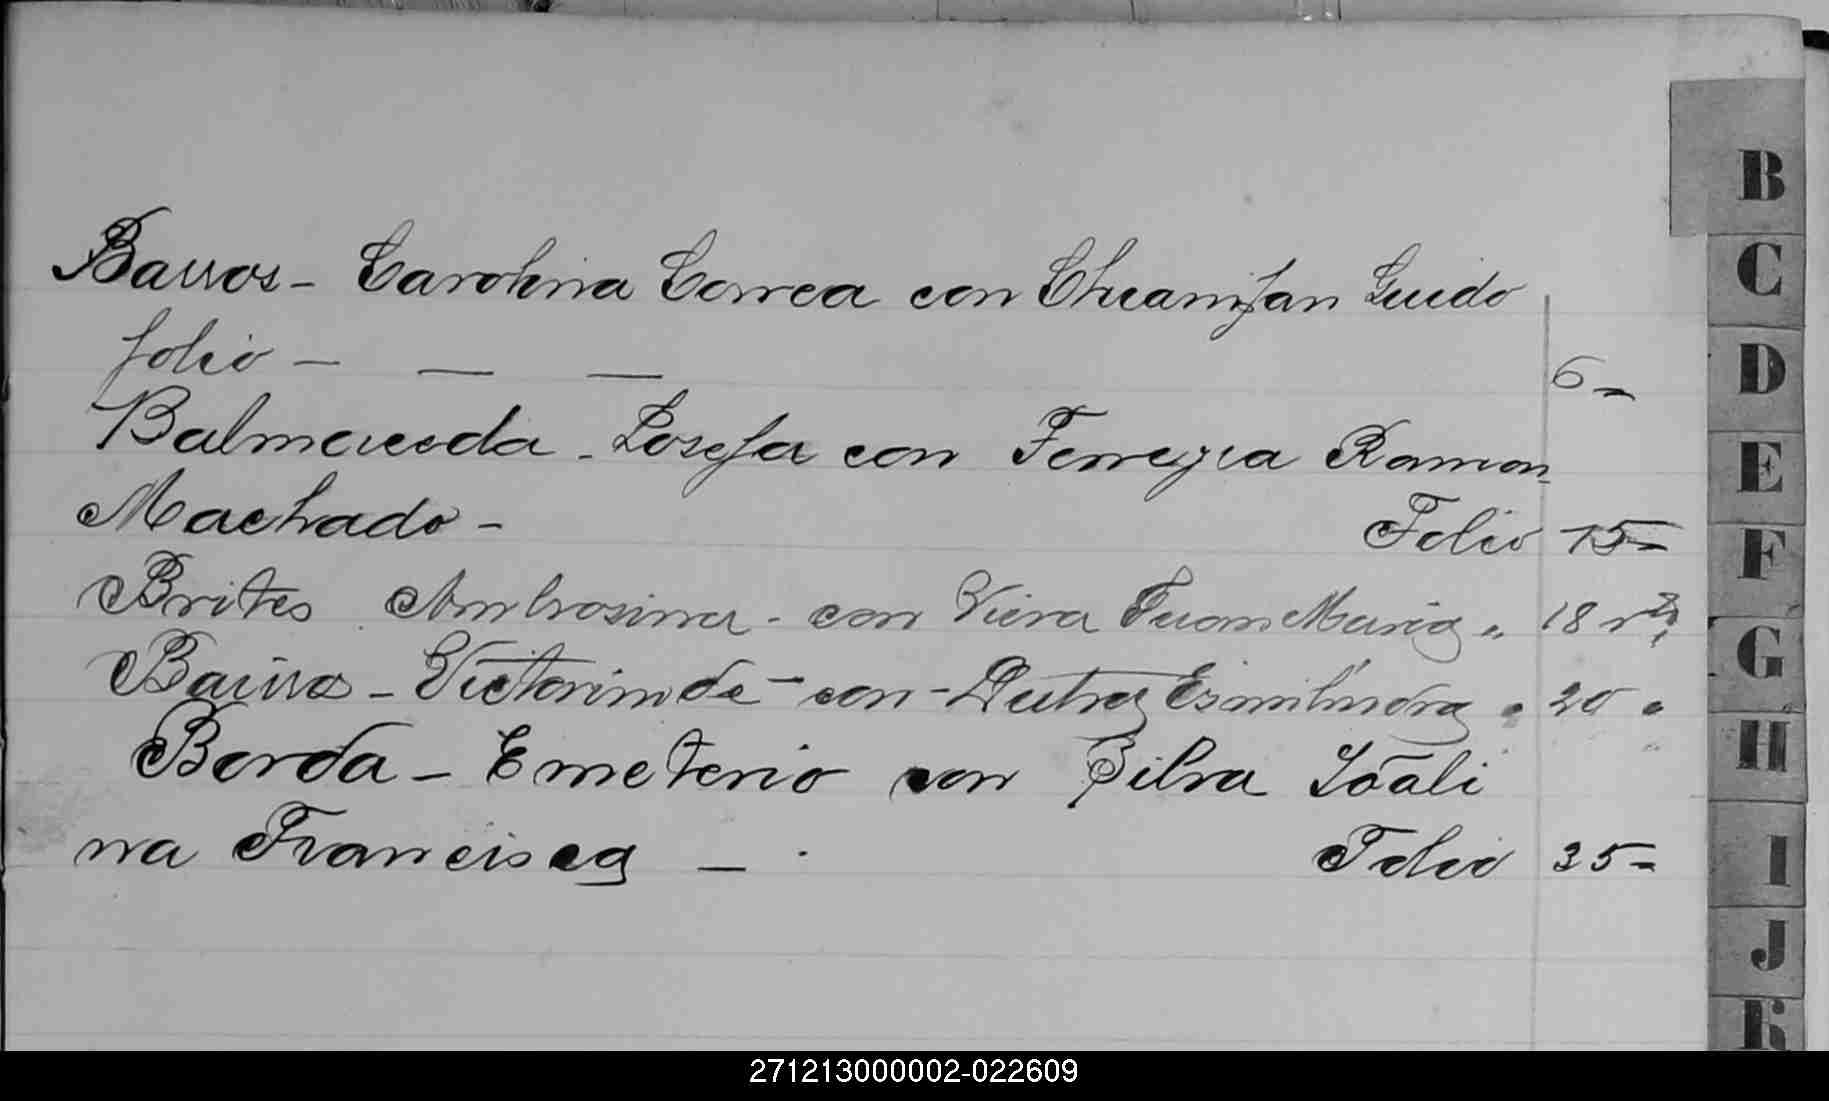 Barros - Carolina Correa con Guido
folio - — — 6 -
Balmaceda - Josefa con Ferreyra Ramon
Machado - Folio 15 -
Brites Ambrosina - con Viera Juan Maria „ 18
- con - Dutra „ 20 „
Borda - Emeterio con Silva Joāli
na Francisca — . Folio 35 -
B
C
D
E
F
G
H
I
J
K
271213000002-022609